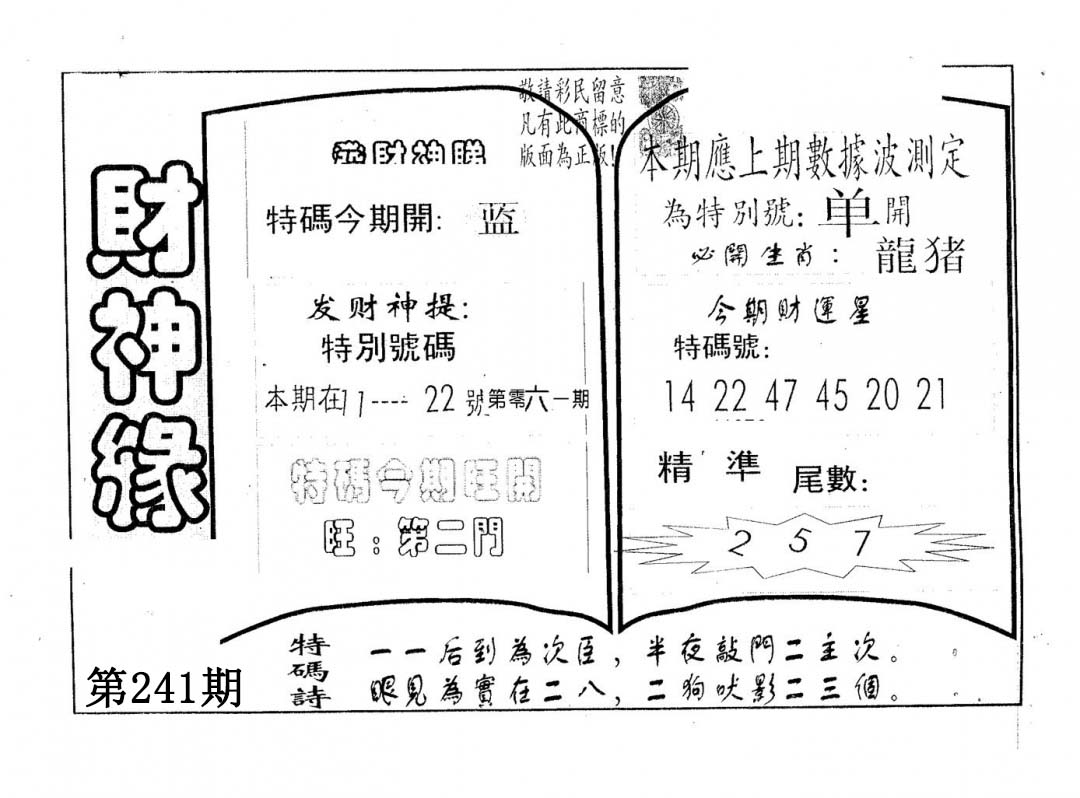 財神緣
第241期
敬請彩民留意
凡有此商標的
版面為正版!
特碼今期開: 蓝
发财神提:
特別號碼
本期在11----22號第零六一期
特碼今期旺開
旺:第二門
本期應上期數據波測定
為特別號:单開
必開生肖:龍猪
今期財運星
特碼號:
14 22 47 45 20 21
精準 尾數:
2 5 7
特碼詩
一一后到為次臣,半夜敲門二主次。
眼見為實在二八,二狗吠影二三個。